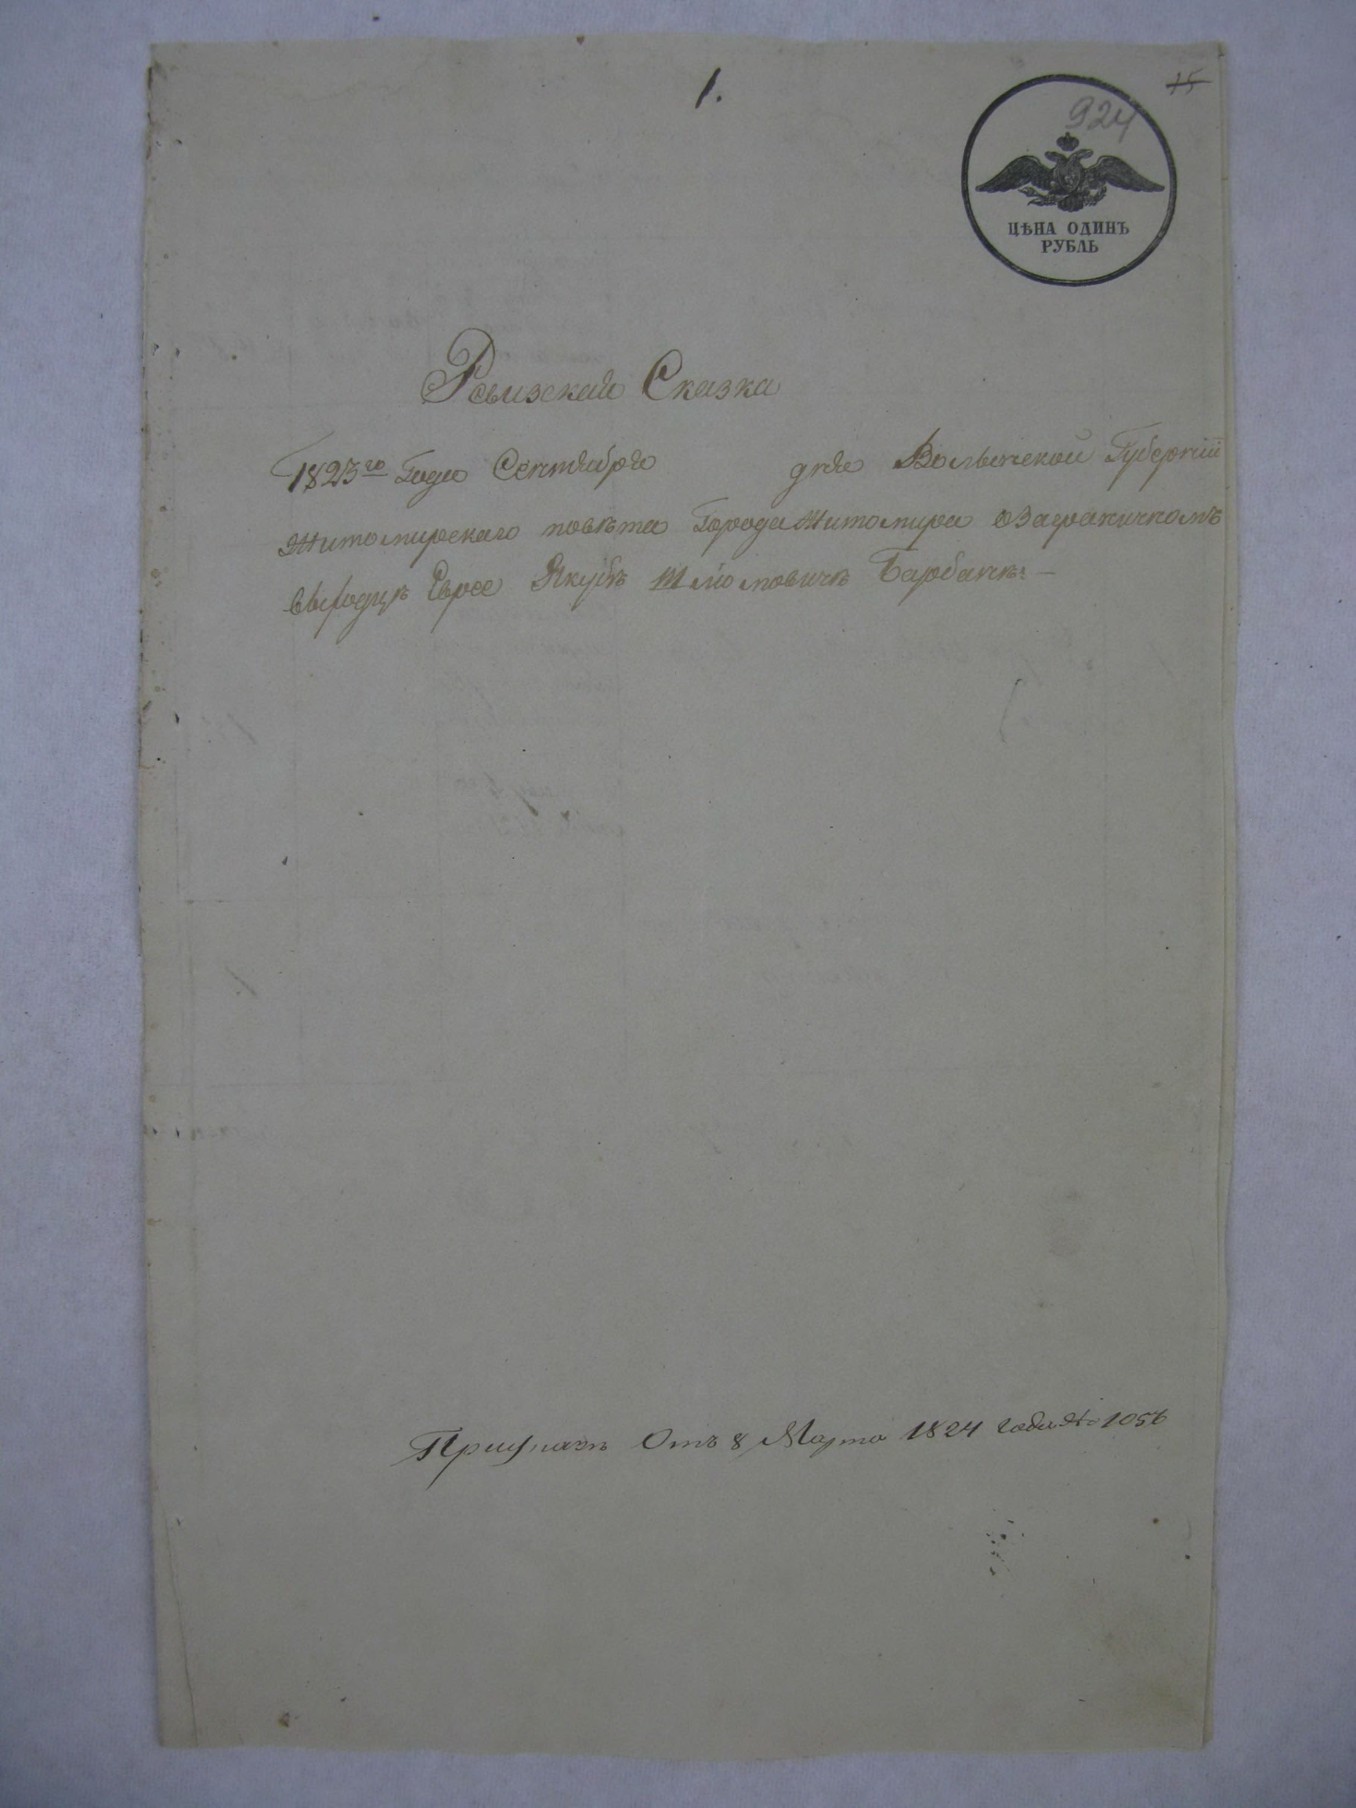 1.
15
924
ЦѢНА ОДИНЪ
РУБЛЬ
Ревизская Сказка
1823го Года Сентября дня Волынской Губернiи
Житомирскаго повѣта Города Житомира о Заграничномъ
выходцѣ Еврее Якубѣ Шлiомовичѣ Барбачѣ:—
При указѣ Отъ 8 Марта 1824 года № 1056